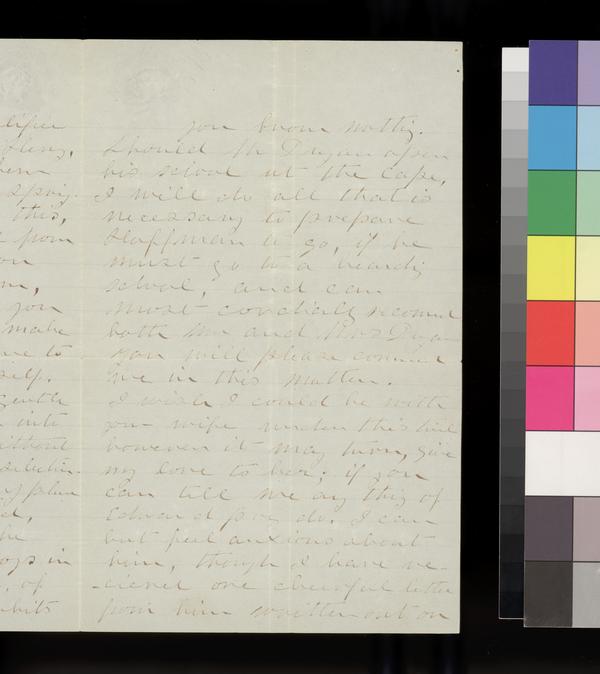 lifier
them
spring
this,
from
you
make
me to
self.
gentle
into
without
of plan
he
of
habits
you know nothing.
Should Mr Dryan open
his school at the Cape,
I will do all that is
necessary to prepare
Hoffman to go, if he
must go to a boarding
school, and can
most cordially recomend
both him and Mrs Dryan
you will please command
me in this matter.
I wish I could be with
your wife under this trial
however it may turn, give
my love to her; if you
can tell me any thing of
Edward pray do. I can
but feel anxious about
him, though I have re-
-cieved one cheerful letter
from him written out on